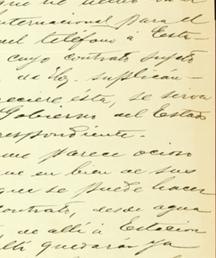 que
internacional para el
del teléfono á Esta
cuyo contrato sujeto
de ley, suplican-
reciere ésta, se sirva
Gobierno del Estado
respondiente.
me parece ocioso
que en bien de sus
que se puede hacer
contrato, desde agua
de allí á Estacion
allí quedarán ya